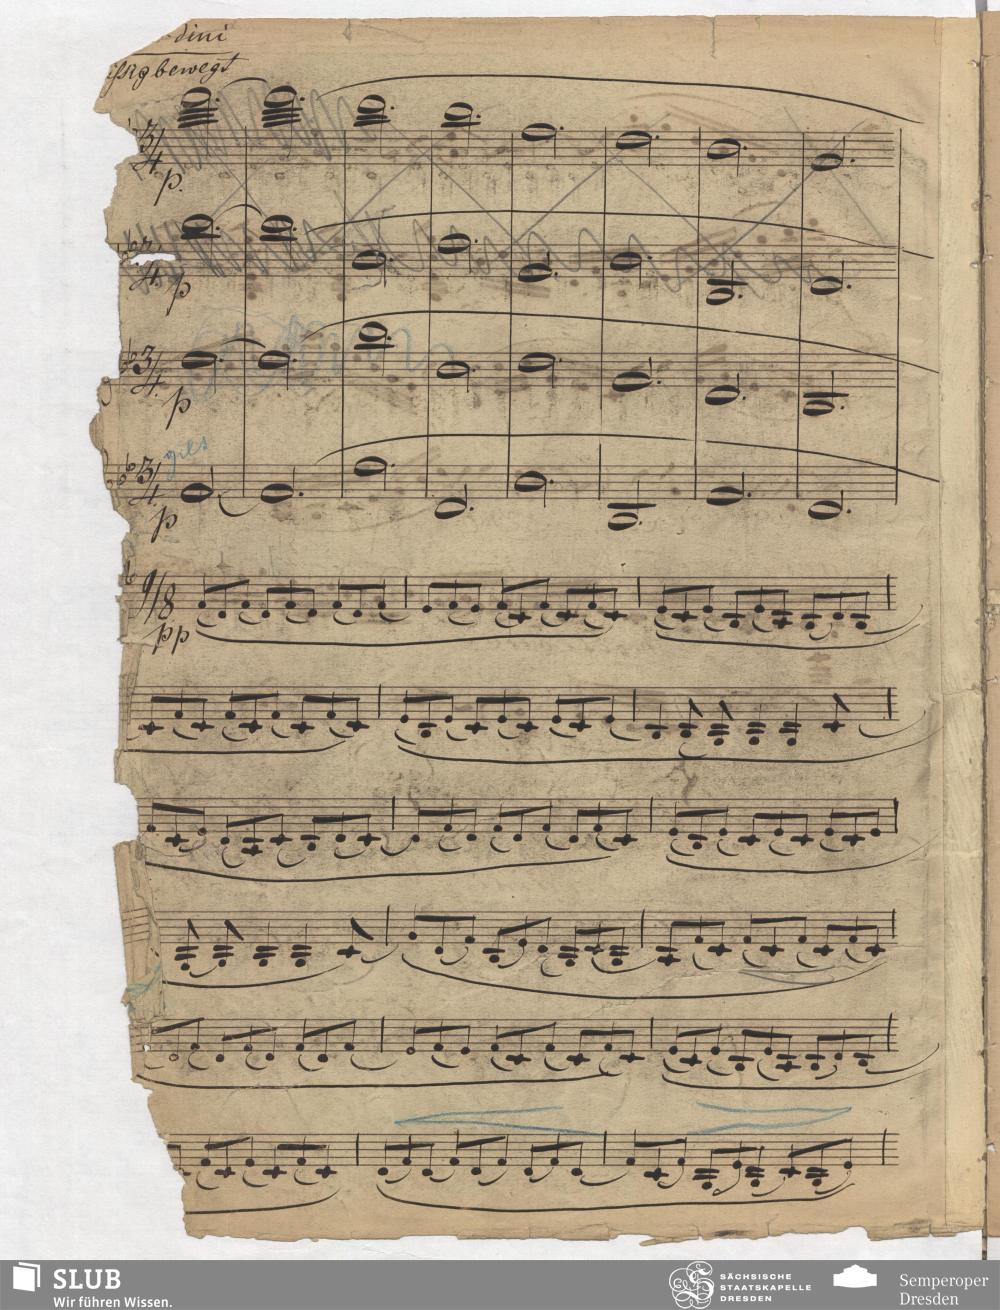 dini
bewegt
3/4
p.
3/4
p
3/4
p
3/4
p
9/8
pp
SLUB
Wir führen Wissen.
SÄCHSISCHE
STAATSKAPELLE
DRESDEN
Semperoper
Dresden